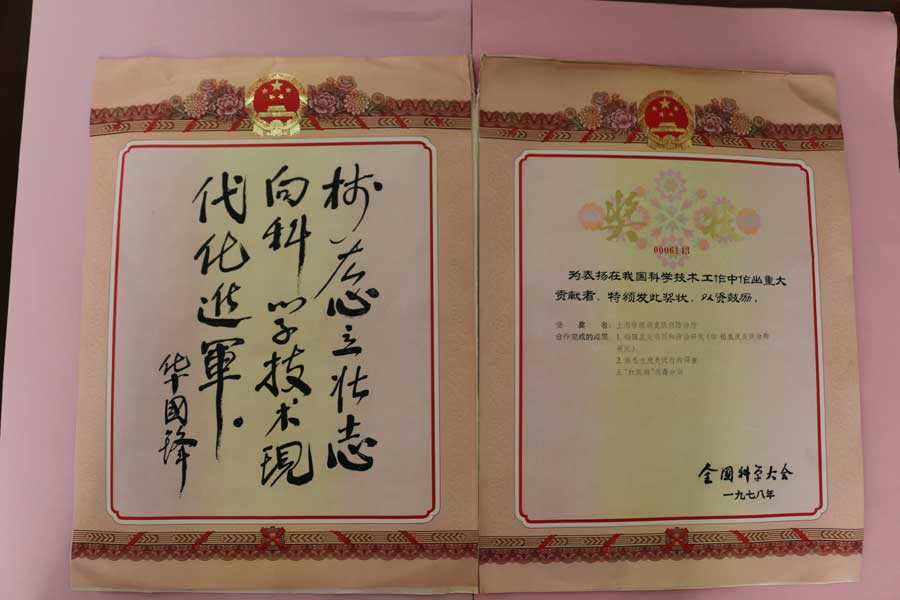 树雄心立壮志
向科学技术現
代化進軍。
华國锋
奖状
0006143
为表扬在我国科学技术工作中作出重大
贡献者，特颁发此奖状，以资鼓励。
受奖者：上海市
合作完成的成果：1.
研究）
2.
全国科学大会
一九七八年